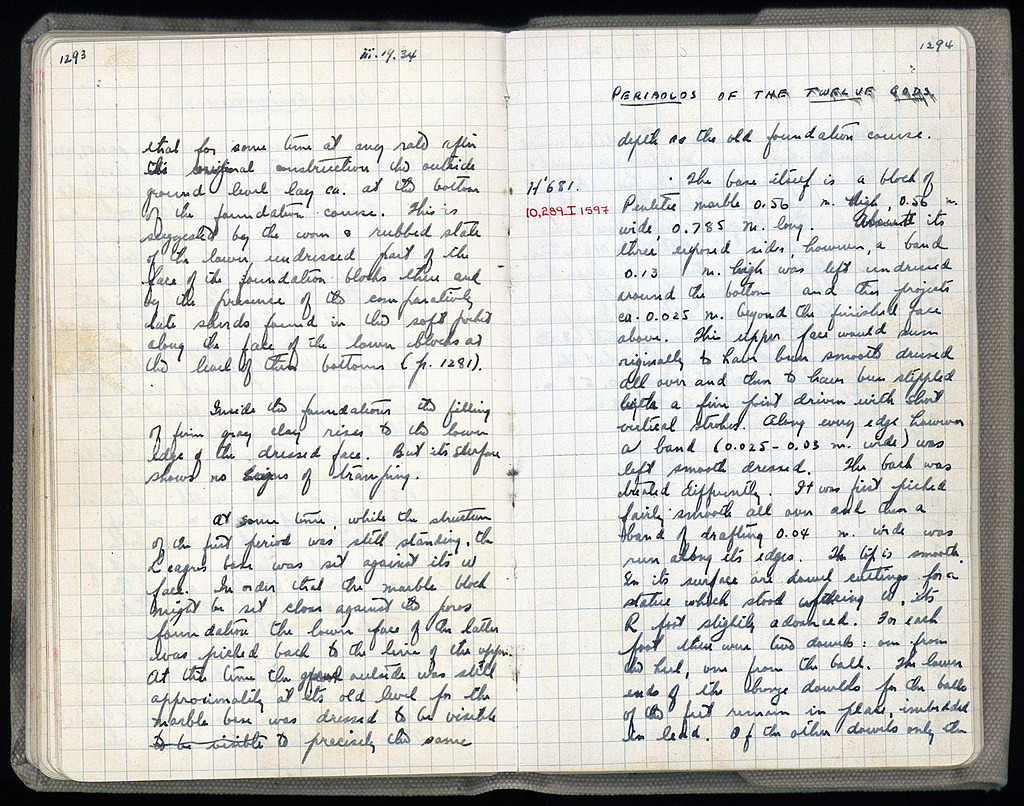 1293
iii.19.34
that for some time at any rate after
the original construction the outside
ground level lay ca. at the bottom
of the foundation course. This is
suggested by the worn & rubbed state
of the lower, undressed part of the
face of the foundation blocks there and
by the presence of the comparatively
late sherds found in the soft pocket
along the face of the lower blocks at
the level of their bottoms (p. 1281).
Inside the foundations the filling
of firm gray clay rises to the lower
edge of the dressed face. But its surface
shows no signs of tramping.
At some time, while the structure
of the first period was still standing, the
Leagros base was set against its W
face. In order that the marble block
might be set close against the poros
foundation the lower face of the latter
was picked back to the line of the upper.
At this time the outside was still
approximately at its old level for the
marble base was dressed to be visible
to be visible to precisely the same
1294
PERIBOLOS OF THE TWELVE GODS
depth as the old foundation course.
H'681.
10,289 I 1597
The base itself is a block of
Pentelic marble 0.56 m. high, 0.56 m.
wide, 0.785 m. long. Around its
three exposed sides, however, a band
0.13 m. high was left undressed
around the bottom and this projects
ca. 0.025 m. beyond the finished face
above. This upper face would seem
originally to have been smooth dressed
all over and then to have been stippled
with a fine point driven with short
vertical strokes. Along every edge however
a band (0.025-0.03 m. wide) was
left smooth dressed. The back was
treated differently. It was first picked
fairly smooth all over and then a
band of drafting 0.04 m. wide was
run along its edges. The top is smooth.
In its surface are dowel cuttings for a
statue which stood facing W, its
R foot slightly advanced. For each
foot there were two dowels: one from
the heel, one from the ball. The lower
ends of the bronze dowels for the balls
of the feet remain in place, imbedded
in lead. Of the other dowels only the